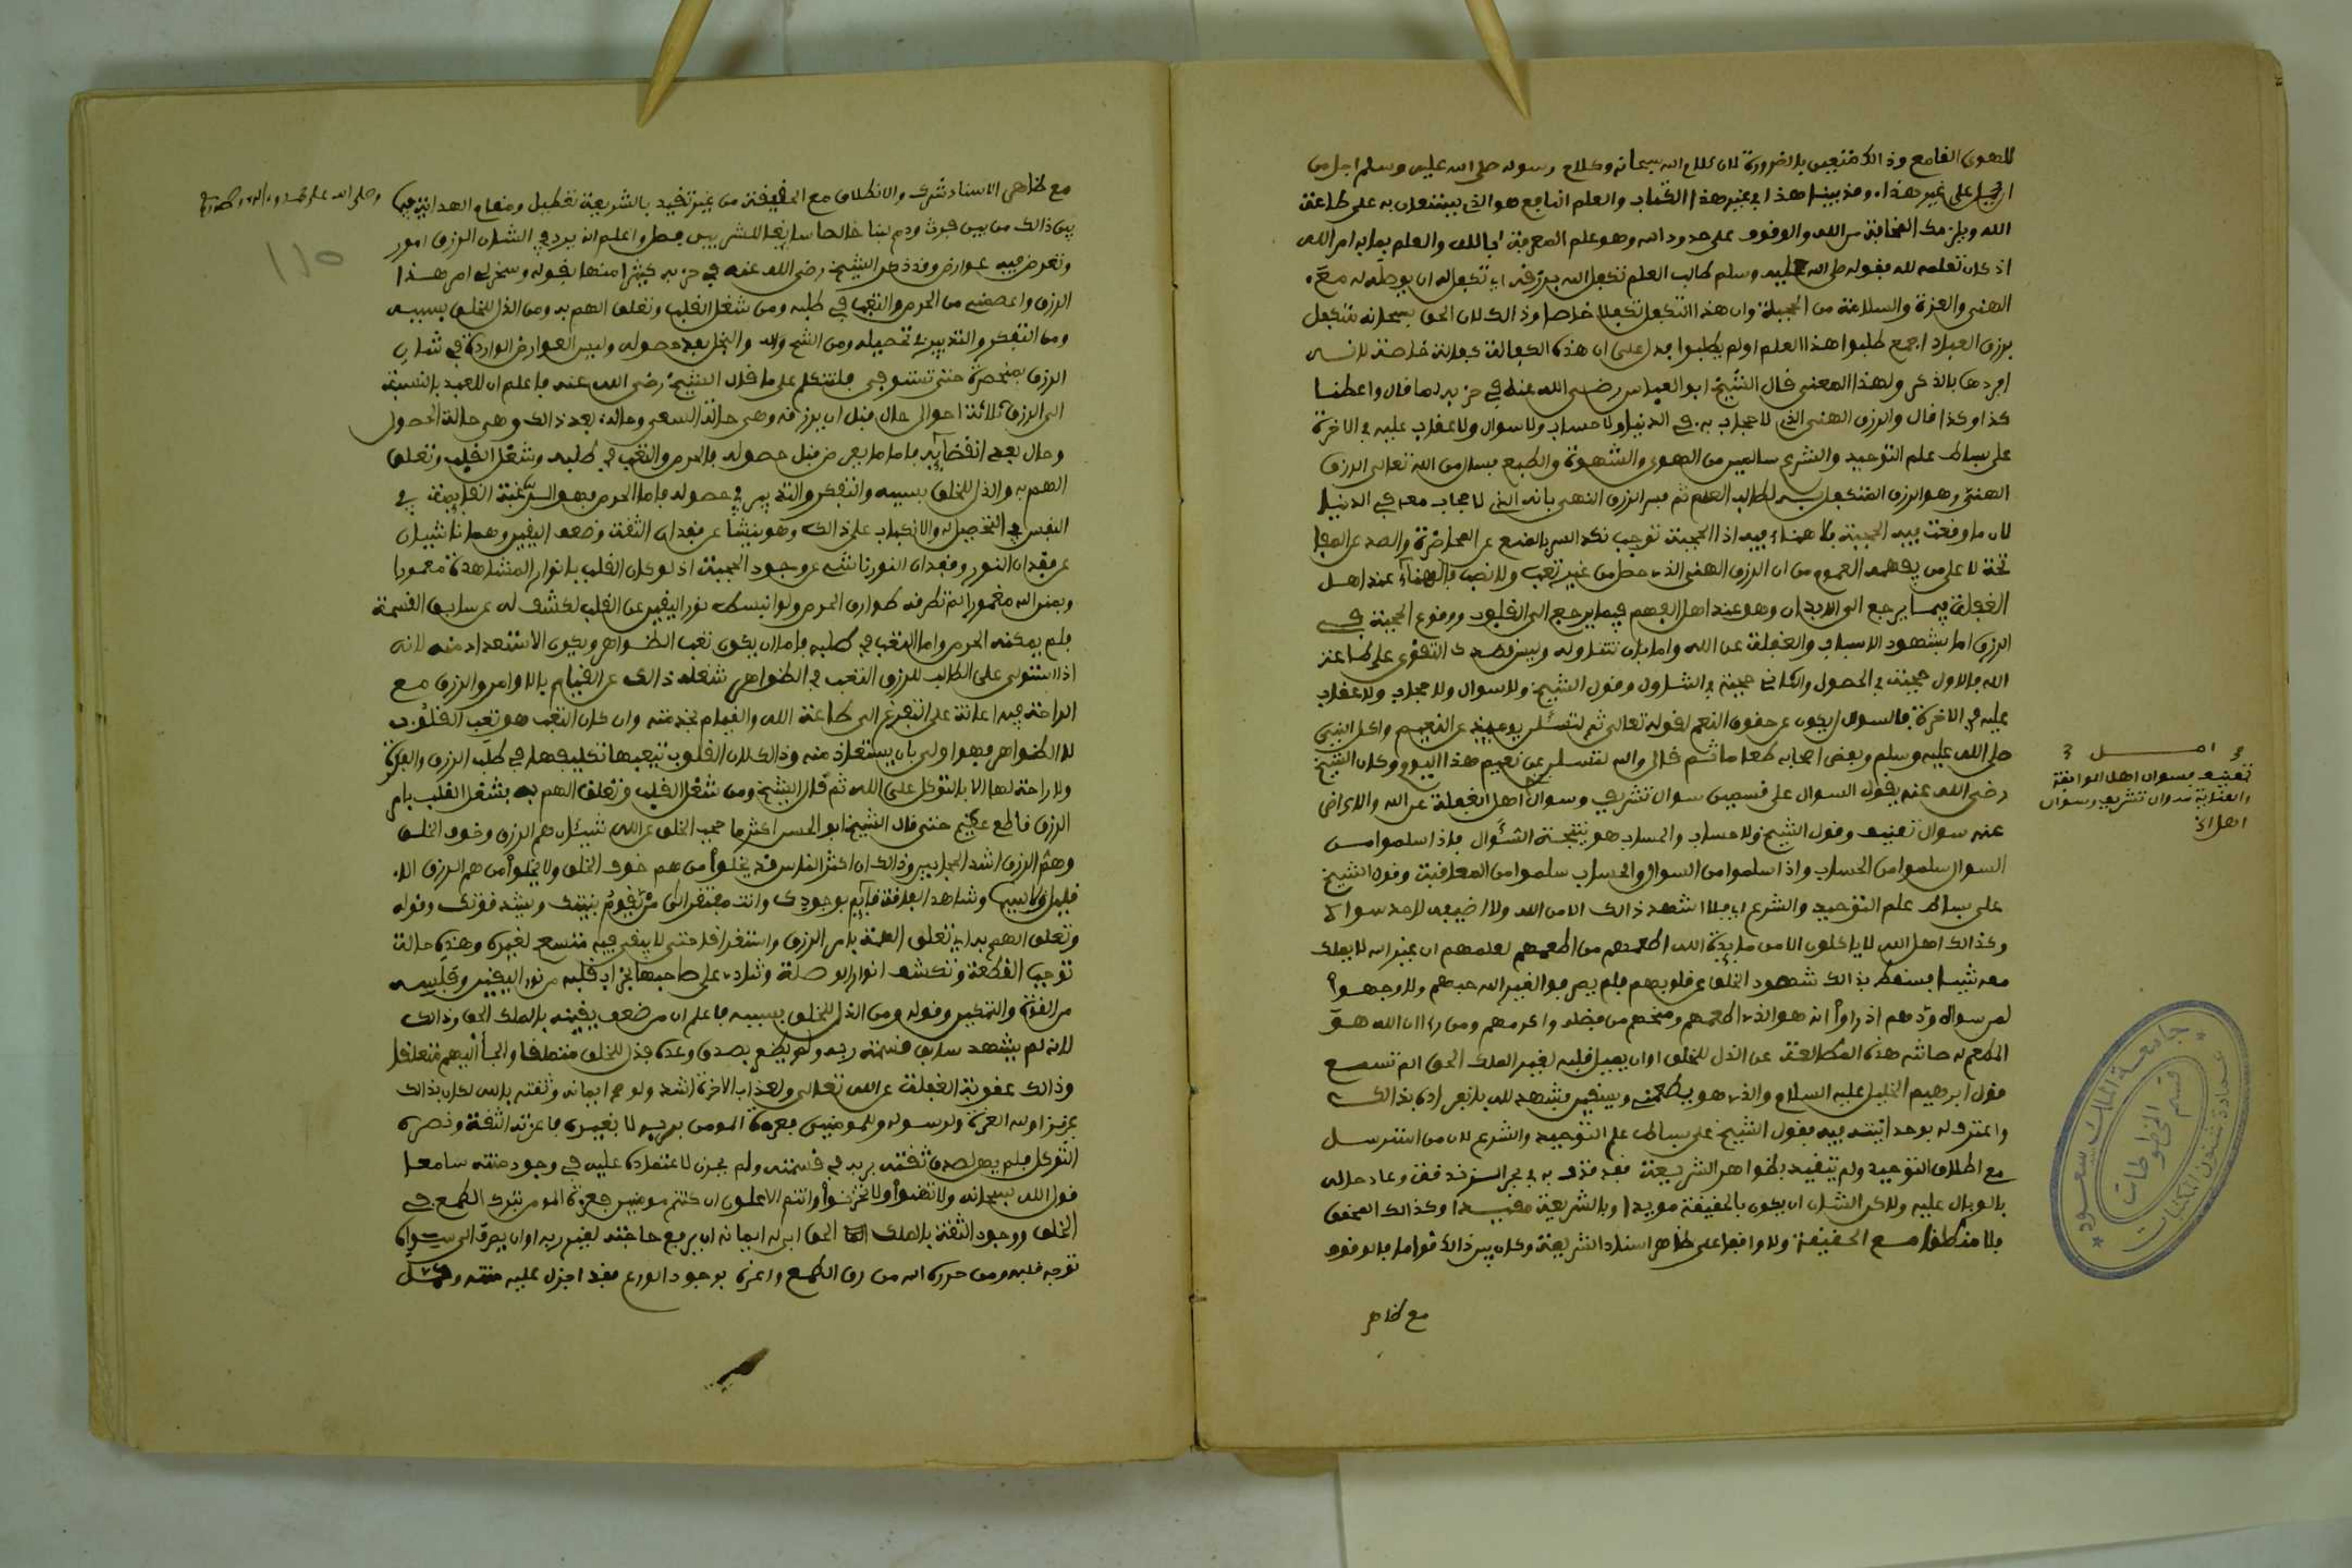 للهوى القامع وذالك متعين بالضرورة لان كلام الله سبحانه وكلام رسوله صلى الله عليه وسلم اجل من
ان يحمل على غير هذا وقد بينا هذا في غير هذا الكتاب والعلم النافع هو الذي يستعان به على طاعة
الله ويلزمك المخافة من الله والوقوف على حدود الله وهو علم المعرفة بالله والعلم بما به امر الله
اذ كان تعلمه لله فقوله صلى الله عليه وسلم طالب العلم تكفل الله برزقه اي تكفل له ان يوصله له مع
الهنى والعزة والسلامة من الحجبة وان هذا التكفل تكفلا خاصا وذالك لان الحق سبحانه متكفل
برزق العباد اجمع طلبوا هذا العلم او لم يطلبوا فدل على ان هذه الكفالة كفالة خاصة لانه
افردها بالذكر ولهذا المعنى قال الشيخ ابو العباس رضي الله عنه في حزبه لما قال واعطنا
كذا وكذا قال والرزق الهني الذي لا حجاب به في الدنيا ولا حساب ولا سوال ولا عقاب عليه في الاخرة
على بساط علم التوحيد والشرع سالمين من الهوى والشهوة والطبع فسال من الله تعالى الرزق
الهني وهو الرزق المتكفل به لطالب العلم ثم فسر الرزق الهني بانه الذي لا حجاب معه في الدنيا
لان ما وقعت فيه الحجبة فلا هناء فيه اذ الحجبة توجب نكد السر بالمنع عن المحاضرة والصد عن المفا
تحة لا على من يفهمه العموم من ان الرزق الهني الذي حصل من غير تعب ولا نصب فالهناء عند اهل
الغفلة فيما يرجع الى الابدان وهو عند اهل الفهم فيما يرجع الى القلوب ووقوع الحجبة في
الرزق اما بشهود الاسباب والغفلة عن الله واما بان تتناوله وليس قصدك التقوى على طاعة
الله فالاول حجبة في الحصول والثاني حجبة في التناول وقول الشيخ ولا سوال ولا حجاب ولا عقاب
عليه في الاخرة فالسوال يكون عن حقوق النعم لقوله تعالى ثم لتسئلن يومئذ عن النعيم واكل النبي
صلى الله عليه وسلم وبعض اصحابه طعاما ثم قال والله لتسئلن عن نعيم هذا اليوم وكان الشيخ
رضي الله عنه يقول السوال على قسمين سوال تشريف وسوال اهل الغفلة عن الله والاعراض
عنه سوال تعنيف وقول الشيخ ولا حساب والحساب هو نتيجة السؤال فاذا سلموا من
السوال سلموا من الحساب واذا سلموا من السوال والحساب سلموا من المعاقبة وقول الشيخ
على بساط علم التوحيد والشرع اي فلا اشهد ذالك الا من الله ولا اضيفه لاحد سواه
وكذالك اهل الله لا ياكلون الا من مايدة الله اطعمهم من اطعمهم لعلمهم ان غير الله لا يملك
معه شيئا فسقط بذالك شهود الخلق عن قلوبهم فلم يصرفوا لغير الله حبهم ولا وجهوا
لمن سواه ودهم اذ راوا انه هو الذي اطعمهم ومنحهم من فضله واكرمهم ومن راى ان الله هو
المطعم له صانته هذه المطالعة عن الذل للخلق او ان يميل قلبه لغير الملك الحق الم تسمع
قول ابرهيم الخليل عليه السلام والذي هو يطعمني ويسقين فشهد لله بانفراده بذالك
واعترف له بوحدانيته فيه فقول الشيخ على بساط علم التوحيد والشرع لان من استرسل
مع اطلاق التوحيد ولم يتقيد بظواهر الشريعة فقد قذف به في بحر الزندقة وعاد حاله
بالوبال عليه ولاكن الشان ان يكون بالحقيقة مويدا وبالشريعة مقيدا وكذالك المحقق
فلا منطلقا مع الحقيقة ولا واقفا على ظاهر اسناد الشريعة وكان بين ذالك قواما فالوقوف
مع ظاهر
اصل
تعنيف فسوال اهل الموافقة
والعناية سوال تشريف وسوال
اهل الخ
جامعة الملك سعود
عمادة شئون المكتبات
قسم المخطوطات
مع ظاهر الاسناد شرك والانطلاق مع الحقيقة من غير تقيد بالشريعة تعطيل ومقام الهداية فيما
بين ذالك من بين فرث ودم لبنا خالصا سايغا للشاربين فصل واعلم انه يرد في الشان الرزق امور
وتعرض فيه عوارض وقد ذكر الشيخ رضي الله عنه في حزبه كثيرا منها بقوله وسخر لي امر هذا
الرزق واعصمني من الحرص والتعب في طلبه ومن شغل القلب وتعلق الهم به ومن الذل للخلق بسببه
ومن التفكر والتدبير في تحصيله ومن الشح والبخل بعد حصوله وليس العوارض الواردة في شان
الرزق بمنحصرة حتى تستوفى فلنتكلم على ما قال الشيخ رضي الله عنه فاعلم ان للعبد بالنسبة
الى الرزق ثلاثة احوال حال قبل ان يرزقه وهي حالة السعي وحالة بعد ذالك وهي حالة الحصول
وحال بعد انقضايه فاما ما يعرض قبل حصوله فالحرص والتعب في طلبه وشغل القلب وتعلق
الهم به والذل للخلق بسببه والتفكر والتدبير في حصوله فاما الحرص فهو الرغبة القايمة في
النفس في التحصيل له والانكباب على ذالك وهو ينشا عن فقدان الثقة وضعف اليقين وهما ناشيان
عن فقدان النور وفقدان النور ناشي عن وجود الحجبة اذ لو كان القلب بانوار المشاهدة معمورا
وبمنن الله مغمورا لم تطرقه طوارق الحرص ولو انبسط نور اليقين على القلب لكشف له عن سابق القسمة
فلم يمكنه الحرص واما التعب في طلبه فاما ان يكون تعب الظواهر ويكون الاستعداد منه لانه
اذا استولى على الطالب للرزق التعب في الظواهر شغله ذالك عن القيام بالاوامر والرزق مع
الراحة فيه اعانة على التفرغ الى طاعة الله والقيام بخدمته وان كان التعب هو تعب القلوب
لا الظواهر فهو اولى بان يستعاذ منه وذالك لان القلوب تتعبها تكليفها في طلب الرزق والفكرة
ولا راحة لها الا بالتوكل على الله ثم قال الشيخ ومن شغل القلب وتعلق الهم به بشغل القلب بامر
الرزق قاطع عظيم حتى قال الشيخ ابو الحسن اكثر ما حجب الخلق عن الله شيئان هم الرزق وخوف الخلق
وهم الرزق اشد الحجابين وذالك ان اكثر الناس قد يخلوا من هم خوف الخلق ولا يخلوا من هم الرزق الا
قليل وشاهد الفاقة قايم بوجودك وانت مفتقر الى من يقيم بنيتك ويشد قوتك وقوله
وتعلق الهم به اي تعلق الهمة بامر الرزق واستغراقا حتى لا يبقى فيه متسع لغيره وهذه حالة
توجب القطعة وتكشف انوار الوصلة وتنادي على صاحبها بخراب قلبه من نور اليقين وفلسه
من القوة والتمكين وقوله ومن الذل للخلق بسببه فاعلم ان من ضعف يقينه بالملك الحق وذالك
لانه لم يشهد سابق قسمته ربه ولم يطمع بصدق وعده فذل للخلق متملقا والجا اليهم متعلقا
وذالك عقوبة الغفلة عن الله تعالى ولعذاب الاخرة اشد ولو صح ايمانه وثقته بالله لكان بذالك
عزيزا ولله العزة ولرسوله وللمومنين فعزة المومن بربه لا بغيره فاعزته الثقة ونصره
التوكل فلم يهن لصدق ثقته بربه في قسمته ولم يحزن لاعتماده عليه في وجود منته سامعا
قول الله سبحانه ولا تهنوا ولا تحزنوا وانتم الاعلون ان كنتم مومنين فعزة المومن بترك الطمع في
الخلق ووجود الثقة بالملك الحق ابى له ايمانه ان يرفع حاجته لغير ربه او ان يصرف الى سواه
توجه قلبه ومن حرره الله من رق الطمع واعزه بوجود الورع فقد اجزل عليه منته
110